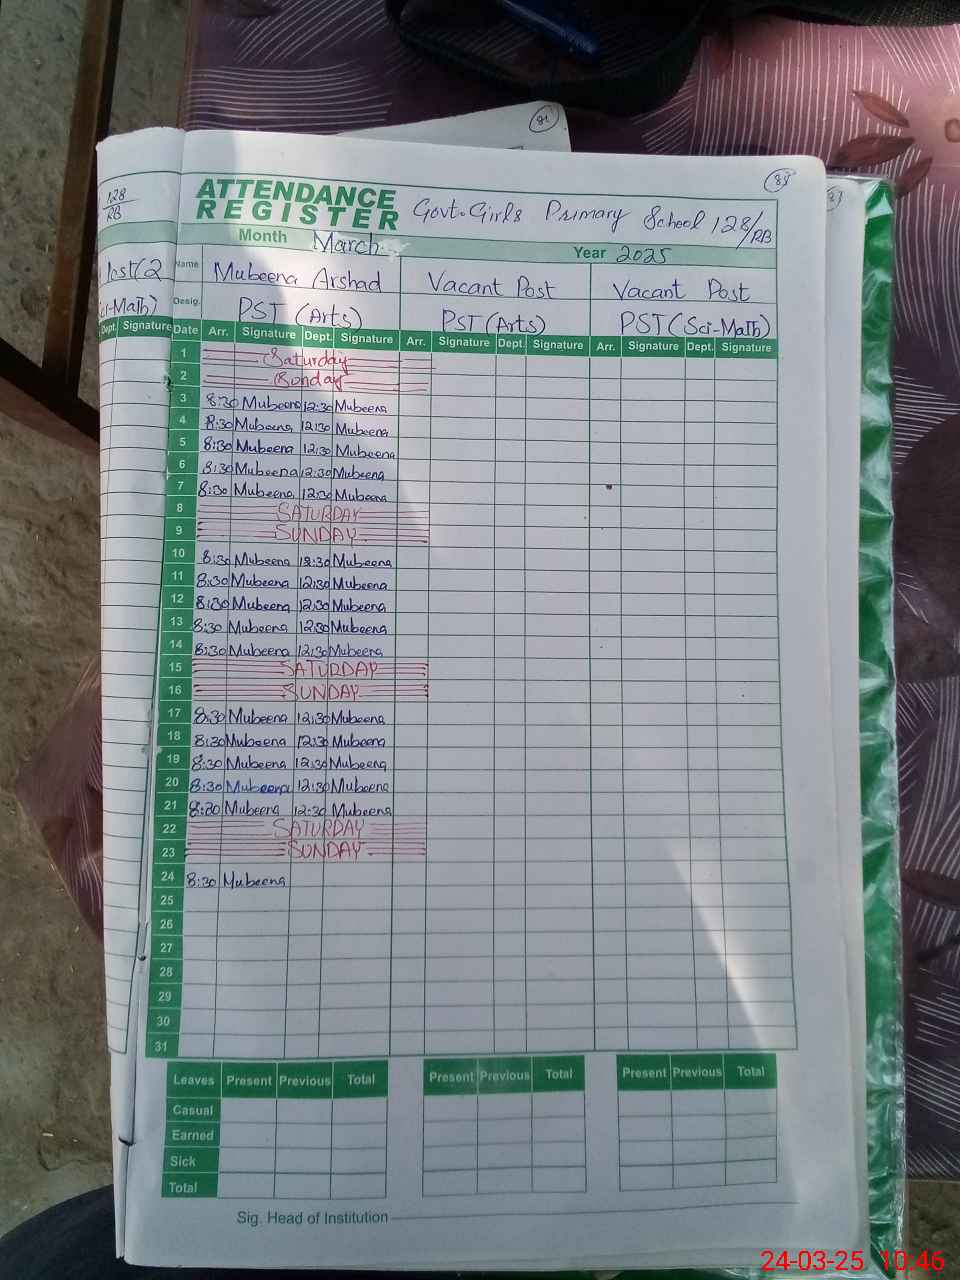 91
83
128
RB
ATTENDANCE
REGISTER
Govt. Girls Primary School 128/RB
Month March
Year 2025
Name Mubeena Arshad Vacant Post Vacant Post
Desig. PST (Arts) PST (Arts) PST (Sci-Math)
Dept. Signature Date Arr. Signature Dept. Signature Arr. Signature Dept. Signature Arr. Signature Dept. Signature
1 Saturday
2 Sonday
3 8:30 Mubeena 12:30 Mubeena
4 8:30 Mubeena 12:30 Mubeena
5 8:30 Mubeena 12:30 Mubeena
6 8:30 Mubeena 12:30 Mubeena
7 8:30 Mubeena 12:30 Mubeena
8 SATURDAY
9 SUNDAY
10 8:30 Mubeena 12:30 Mubeena
11 8:30 Mubeena 12:30 Mubeena
12 8:30 Mubeena 12:30 Mubeena
13 8:30 Mubeena 12:30 Mubeena
14 8:30 Mubeena 12:30 Mubeena
15 SATURDAY
16 SUNDAY
17 8:30 Mubeena 12:30 Mubeena
18 8:30 Mubeena 12:30 Mubeena
19 8:30 Mubeena 12:30 Mubeena
20 8:30 Mubeena 12:30 Mubeena
21 8:30 Mubeena 12:30 Mubeena
22 SATURDAY
23 SUNDAY
24 8:30 Mubeena
25
26
27
28
29
30
31
Leaves Present Previous Total Present Previous Total Present Previous Total
Casual
Earned
Sick
Total
Sig. Head of Institution
24-03-25 10:46